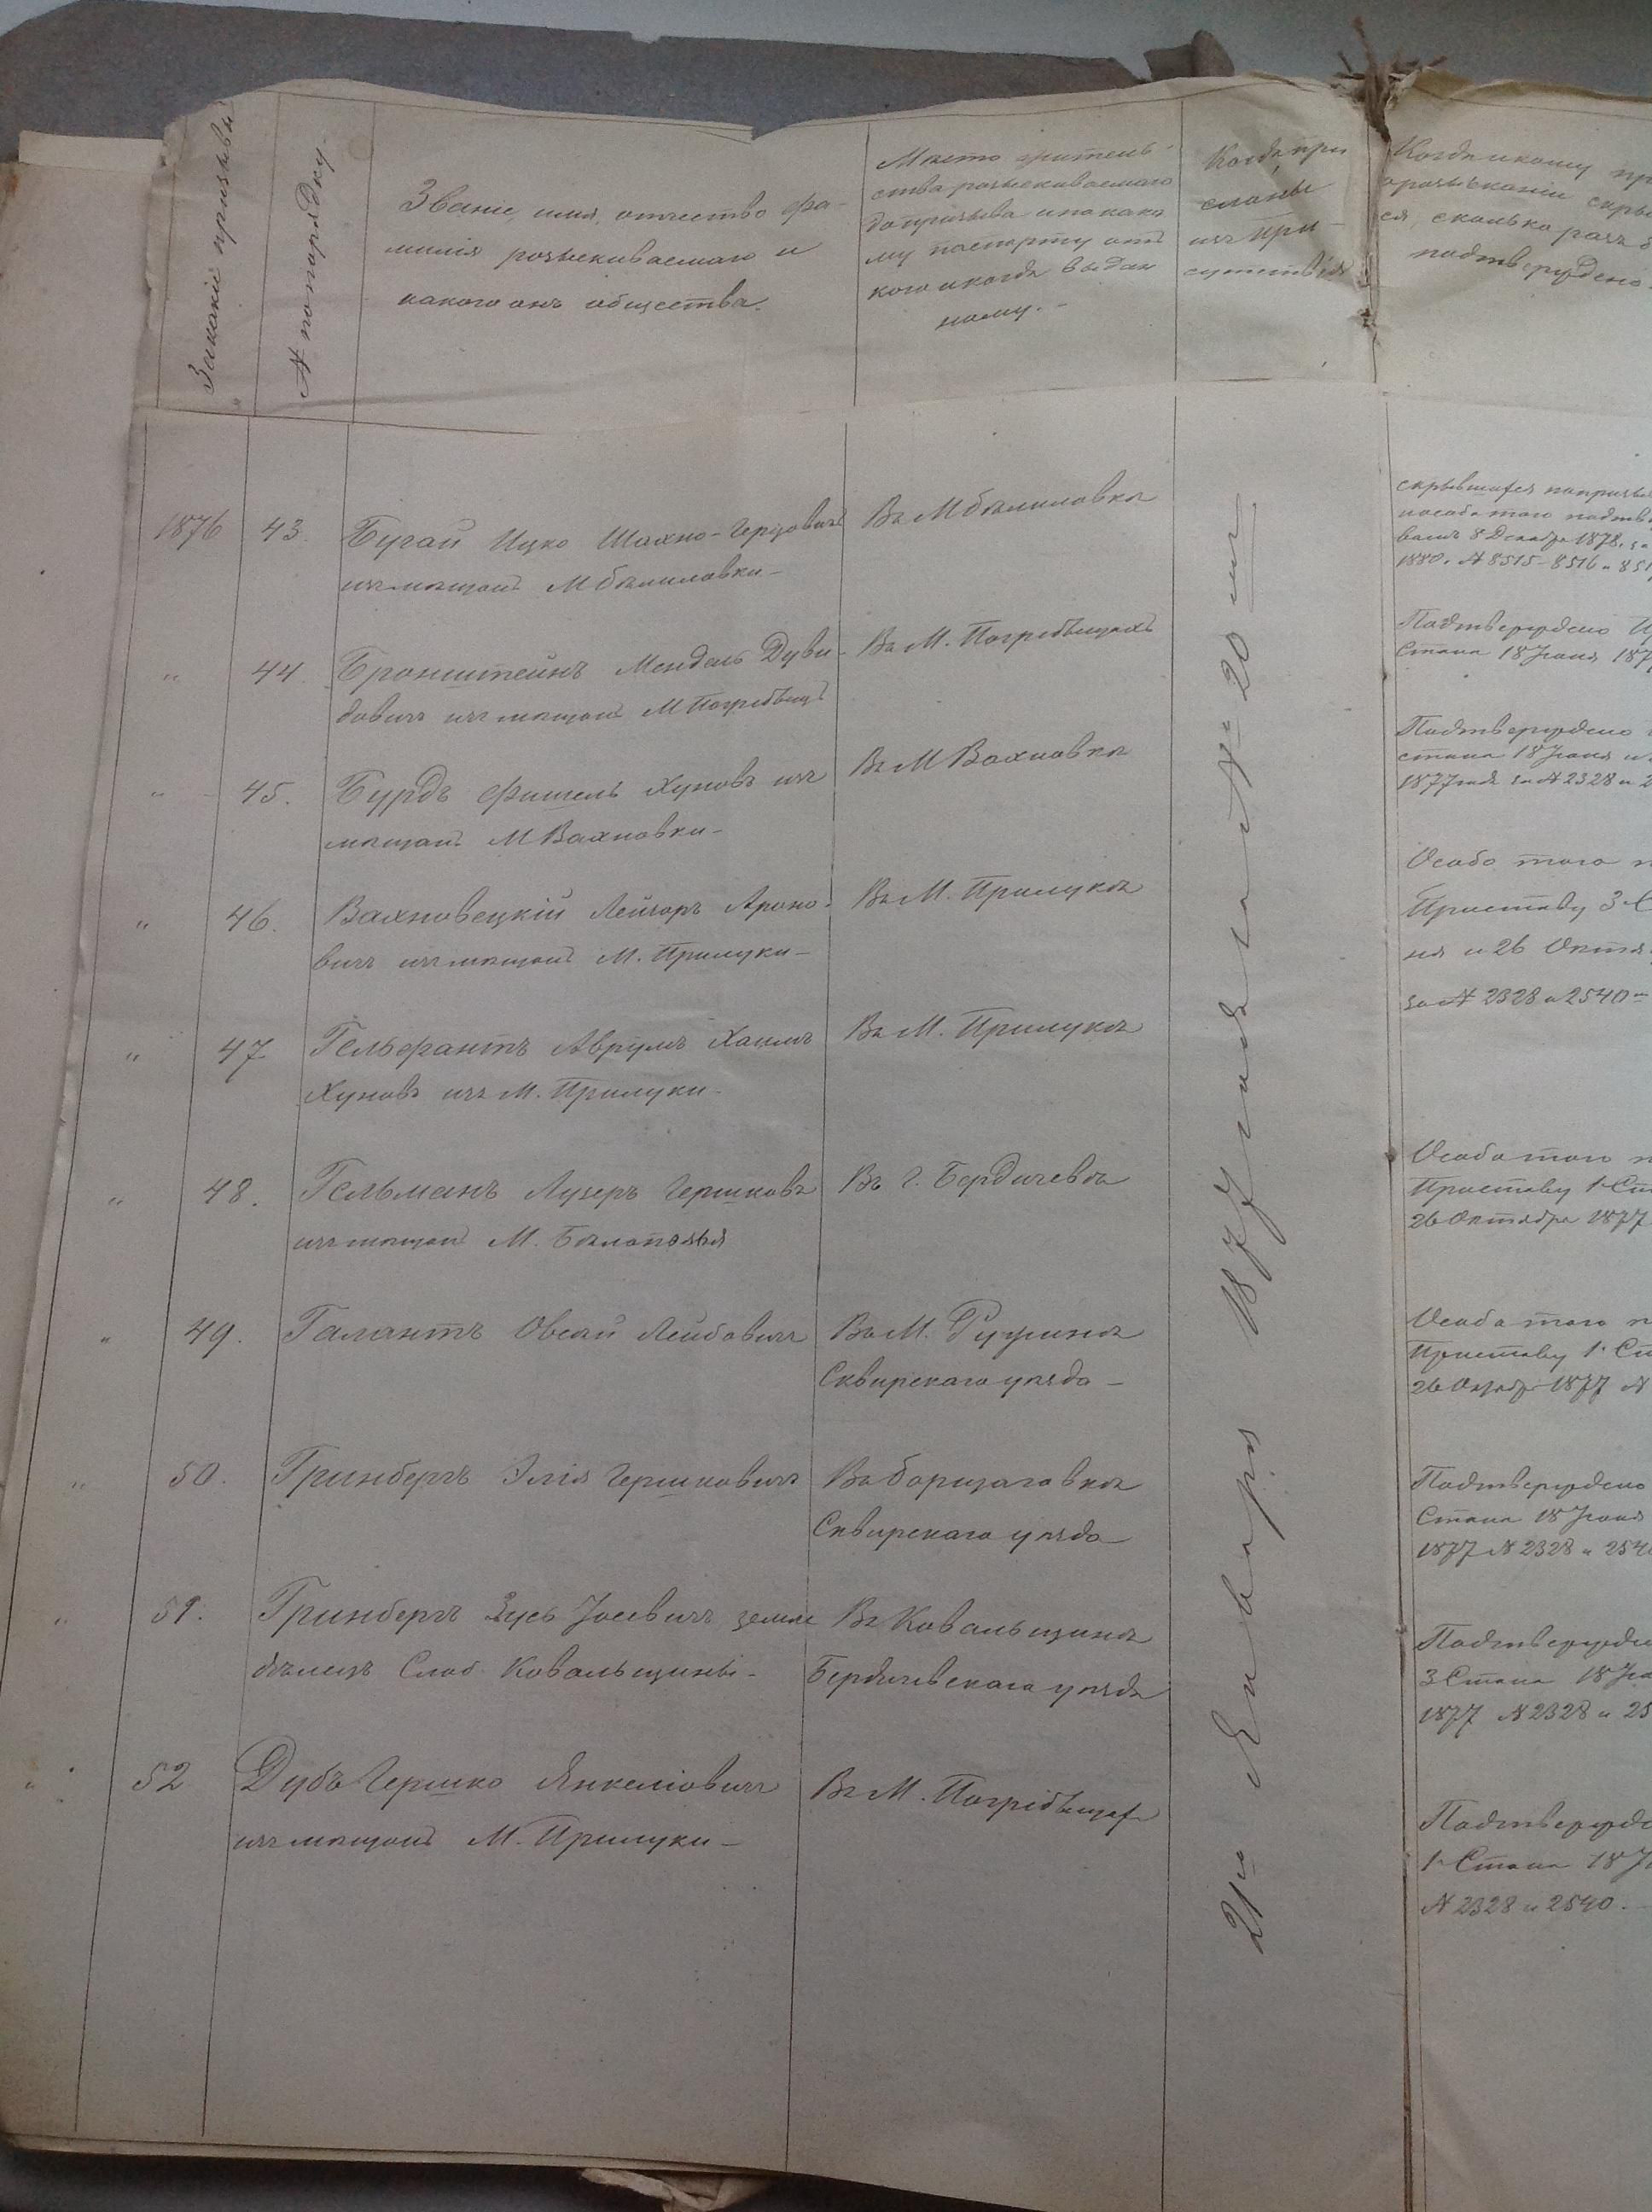 За какой призывъ
№ по порядку.
Званіе, имя, отчество фа-
милія розыскиваемаго и
какого онъ общества.
Мѣсто житель-
ства розыскиваемаго
до призыва и по како
му паспорту отъ
кого и когда выдан
ному. -
Когда при
сланы
изъ при-
сутствія
Когда и кому пр
о розысканіи скры
ся, сколько разъ
подтверждено.
1876
43.
Бугай Ицко Шахно-Герцовичъ
изъ мѣщанъ М Бѣлиловки-
Въ М Бѣлиловкѣ
скрывшагося
особа того
8 Декабр 1878. за
1880. № 8515-8516 и 851
„ 44.
Бронштейнъ Мендель Дуви-
довичъ изъ мѣщанъ М Погребищъ
Въ М. Погребищахъ
Подтверждено
Стана 18 Іюня 187
„ 45.
Бурдъ Фишель Хуновъ изъ
мѣщанъ М Вахновки-
Въ М Вахновкѣ
Подтверждено
стана 18 Іюня и
1877 года за № 2328 и 2
„ 46.
Вахновецкій Лейзоръ Ароно-
вичъ изъ мѣщанъ М. Прилуки-
Въ М. Прилукѣ
Особо того
Приставу 3 С
ня и 26 Октя
за № 2328 и 2540
„ 47
Гельфантъ Аврумъ Хаимъ
Хуновъ изъ М. Прилуки-
Въ М. Прилукѣ
„ 48.
Гельманъ Лузеръ Гершковъ
изъ мѣщанъ М. Бѣлополья
Въ г. Бердичевѣ
Особо того
Приставу 1 Ст
26 Октября 1877
„ 49.
Галантъ Овсѣй Лейбовичъ
Въ М. Ружинѣ
Сквирскаго уѣзда-
Особо того
Приставу 1 Ст
26 Октябр 1877 №
„ 50.
Гринбергъ Элія Гершковичъ
Въ Борщаговкѣ
Сквирскаго уѣзда
Подтверждено
Стана 18 Іюня
1877 № 2328 и 2540
„ 51.
Гринбергъ Зусь Іосевичъ земле
дѣлецъ Слоб. Ковальщины-
Въ Ковальщинѣ
Бердичевскаго уѣзда
Подтвержде
3 Стана 18 Ію
1877 № 2328 и 25
„ 52
Дубъ Гершко Янкелiовичъ
изъ мѣщанъ М. Прилуки-
Въ М. Погребищах
Подтвержде
1 Стана 18 І
№ 2328 и 2540.-
21го Января 1877 года за № 20 мъ